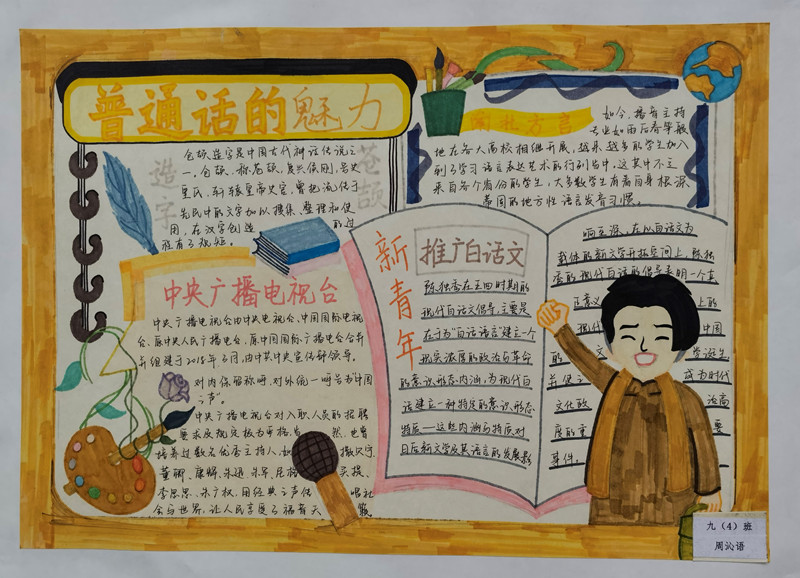 普通话的魅力
仓颉造字
仓颉造字是中国古代神话传说之
一,仓颉,称苍颉,复姓侯刚,号史
皇氏,轩辕皇帝史官,曾把流传于
先民中的文字加以搜集、整理和使
用,在汉字创造的过
程有了规范。
中央广播电视台
中央广播电视台由中央电视台、中国国际电视
台、原中央人民广播电台、原中国国际广播电台合并
组建于2018年3月,由中共中央宣传部领导。
对内保留称呼,对外统一呼号为“中国
之声”。
中央广播电视台对入职人员的招聘
要求及规定极为严格,当然,也曾
培养过数名优秀主持人,如撒贝宁
董卿、康辉、朱迅、朱军、尼格买提
李思思、朱广权,用经典之声传唱社
会与世界,让人民享受了福音天籁
阐札方言
如今,播音主持
专业如雨后春笋般
地在各大高校相继开展,越来越多的学生加入
到了学习语言表达艺术的行列当中,这其中不乏
来自各个省份的学生,大多数学生有着自身根深
蒂固的地方性语言发音习惯。
新青年
推广白话文
陈独秀在五四时期的
现代白话文倡导,主要是
在于为“白话语言”建立一个
现实浓度的政治与革命
的意识形态内涵,为现代白
话建立一种特定的意识形态
特质——这些内涵与特质对
日后新文学及其语言的发展影
响至深。在以白话文为
载体的新文学开拓空间上,陈独
秀的现代白话的倡导表明一个真
正意义上的
现代中国
的文学诞生
并使之成为时代
文化政治高
度的重要
事件。
九(4)班
周沁语